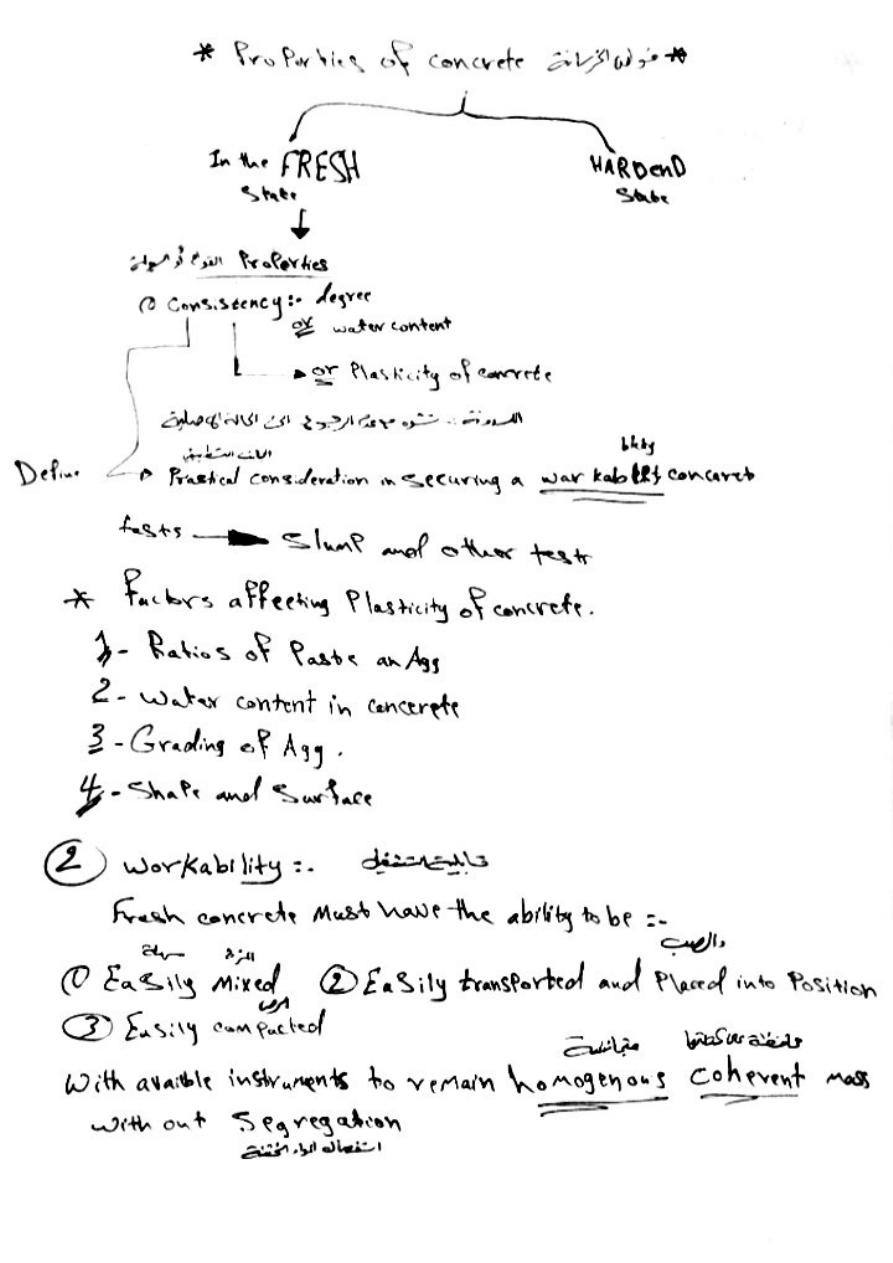 * Properties of concrete خواص الخرسانة *
In the FRESH
State
HARDenD
State
Properties
① Consistency:- degree
or water content
or Plasticity of concrete
اللدونة :. تشوه مع عدم الرجوع الى الحالة الاصلية
Define
bility
Prastical consideration in securing a war kab concaret
tests → Slump and other tests
* Factors affecting Plasticity of concrete.
1- Ratios of Paste an Agg
2- Water content in concerete
3- Grading of Agg.
4- Shape and Surface
② Workability :. قابلية التشغيل
Fresh concrete Must have the ability to be :-
والصب
① Easily Mixed ② Easily transported and Placed into Position
③ Easily compacted
متجانسة
With avaible instruments to remain homogenous coherent mass
with out Segregation